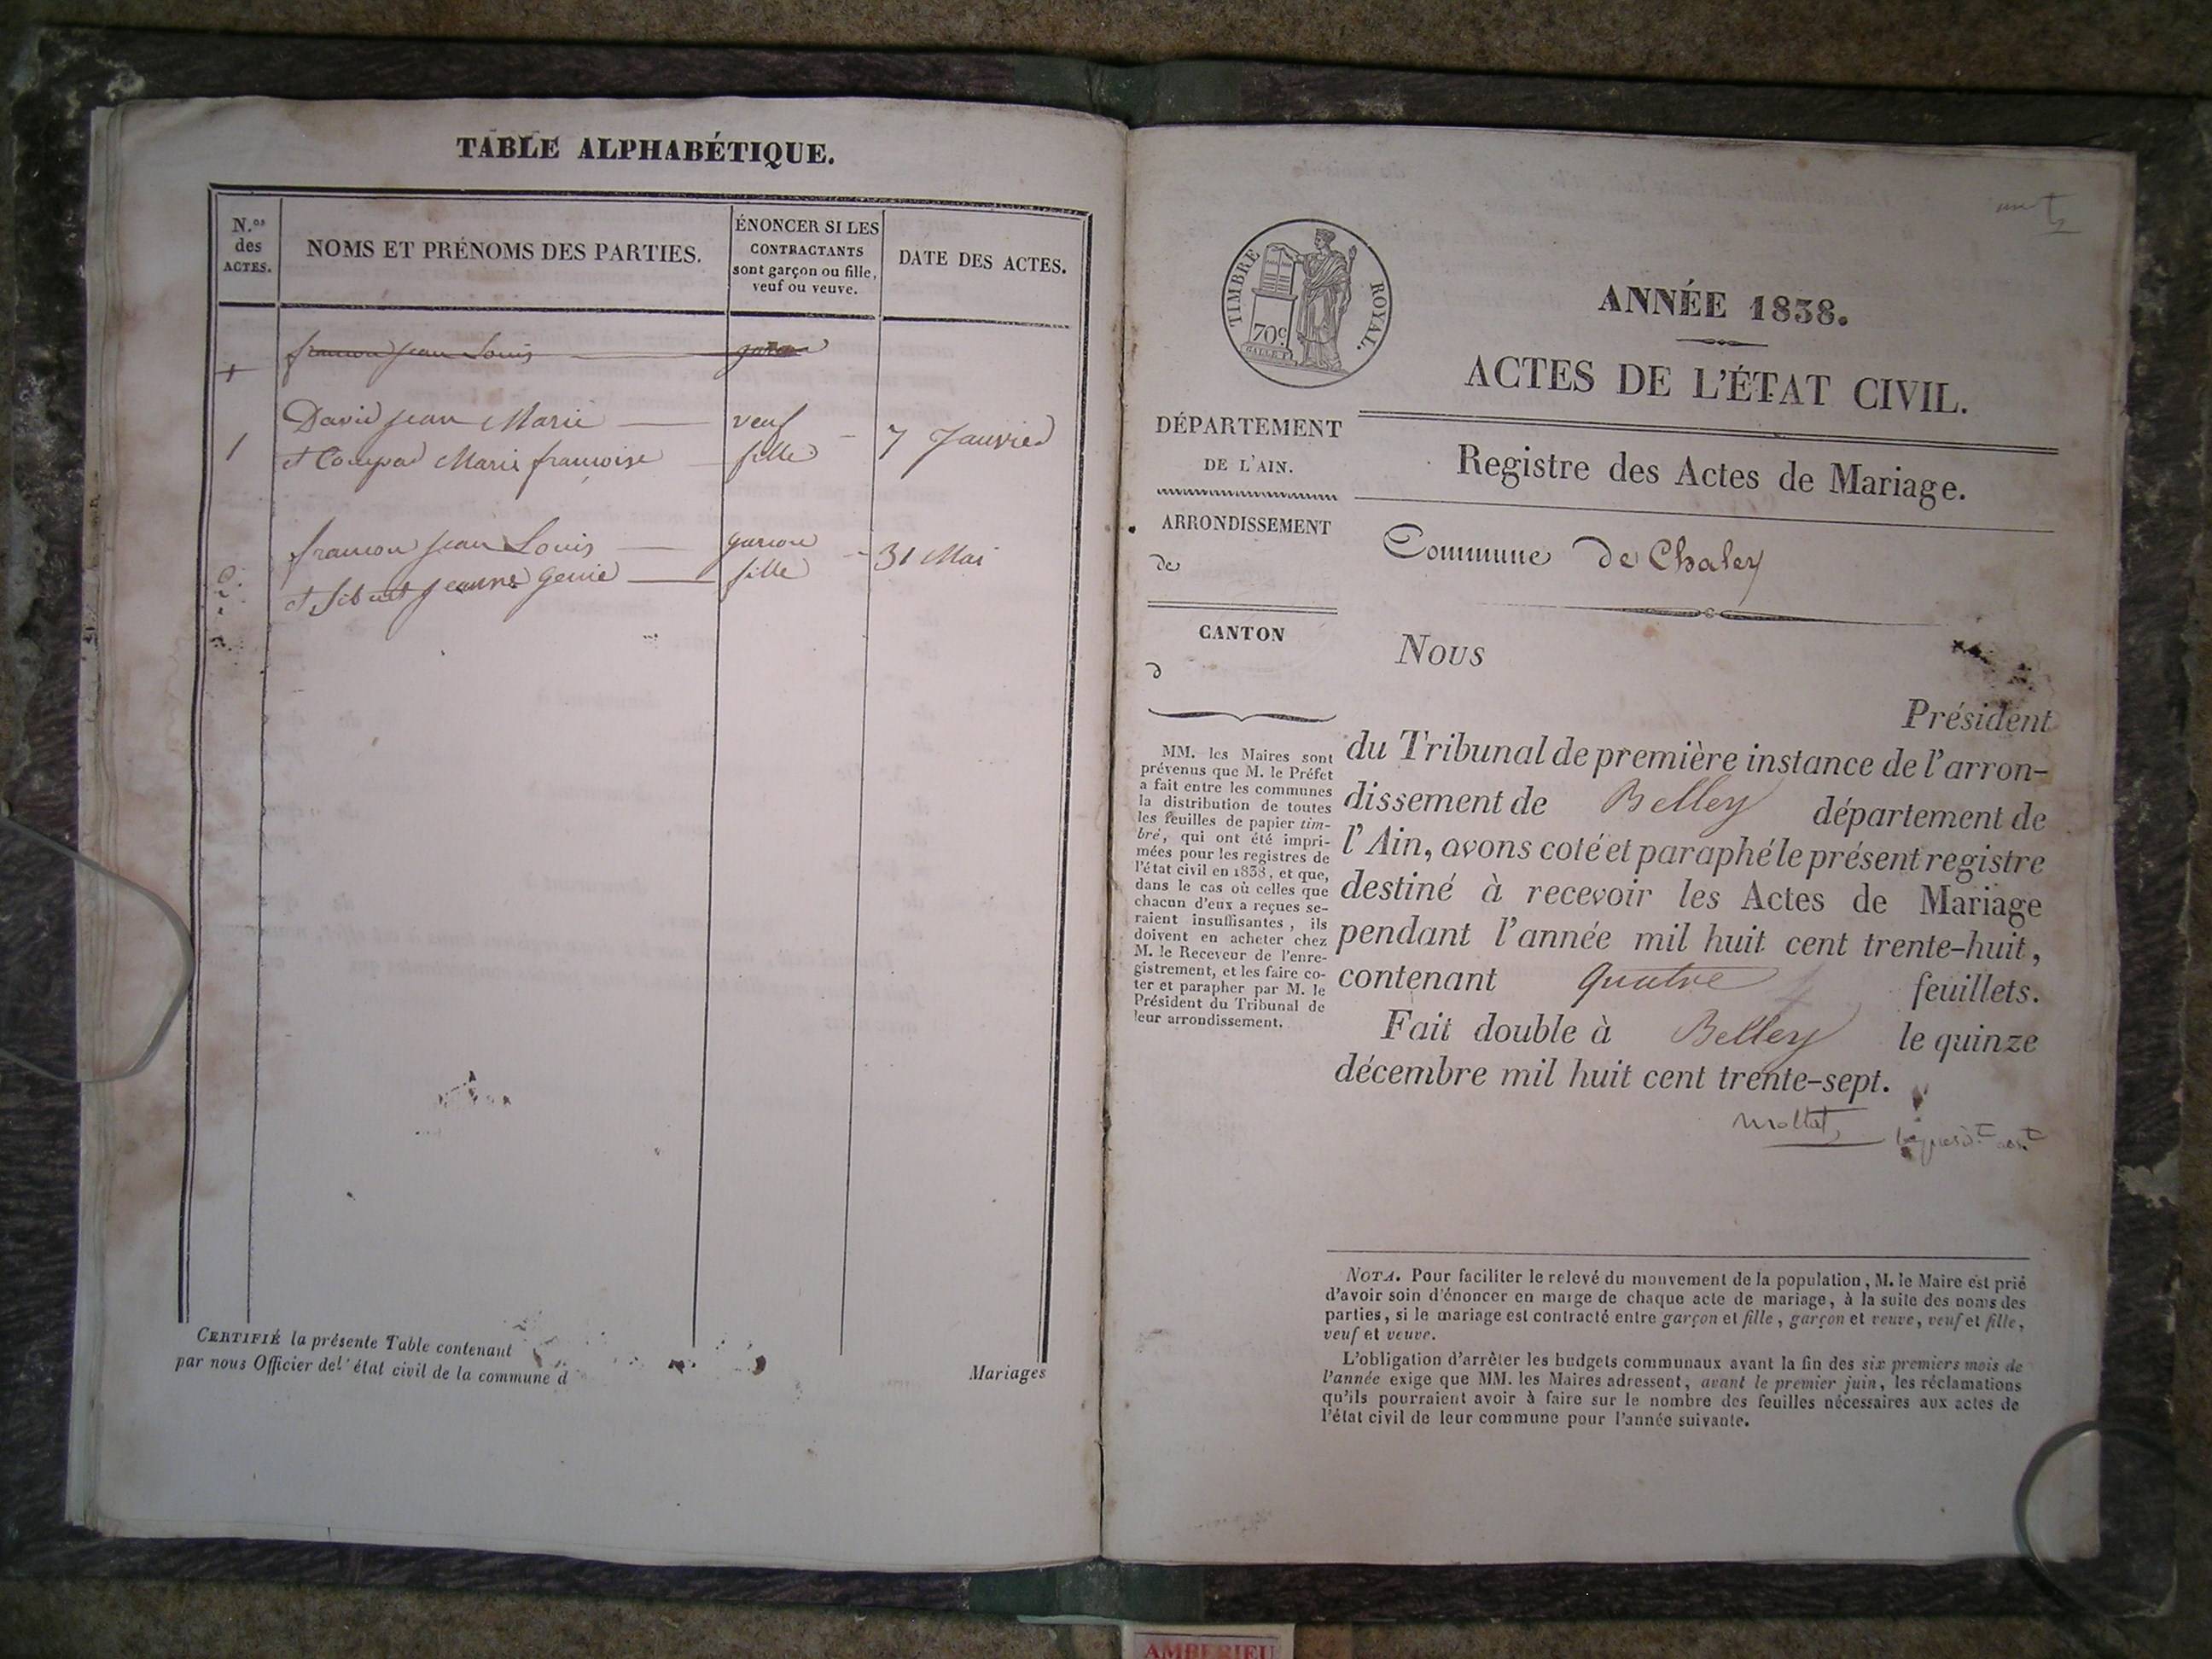 TABLE ALPHABÉTIQUE.
N.os des ACTES.
NOMS ET PRÉNOMS DES PARTIES.
ÉNONCER SI LES
CONTRACTANTS
sont garçon ou fille,
veuf ou veuve.
DATE DES ACTES.
francon Jean Louis garcon
1
David Jean Marie veuf
1 7 Janvier
et Marie françoise fille
francon Jean Louis garcon
31 Mai
et Sibuet Jeanne fille
2
CERTIFIÉ la présente Table contenant
Mariages
par nous Officier de l'état civil de la commune d
TIMBRE ROYAL.
70c
ANNÉE 1838.
ACTES DE L'ÉTAT CIVIL.
DÉPARTEMENT
DE L'AIN.
Registre des Actes de Mariage.
ARRONDISSEMENT
de
Commune de Chaley
CANTON
d
MM. les Maires sont
prévenus que M. le Préfet
a fait entre les communes
la distribution de toutes
les feuilles de papier tim-
bré, qui ont été impri-
mées pour les registres de
l'état civil en 1838, et que,
dans le cas où celles que
chacun d'eux a reçues se-
raient insuffisantes, ils
doivent en acheter chez
M. le Receveur de l'enre-
gistrement, et les faire co-
ter et parapher par M. le
Président du Tribunal de
leur arrondissement.
Nous
Président
du Tribunal de première instance de l'arron-
dissement de Belley département de
l'Ain, avons coté et paraphé le présent registre
destiné à recevoir les Actes de Mariage
pendant l'année mil huit cent trente-huit,
contenant quatre feuillets.
Fait double à Belley le quinze
décembre mil huit cent trente-sept.
NOTA. Pour faciliter le relevé du mouvement de la population, M. le Maire est prié
d'avoir soin d'énoncer en marge de chaque acte de mariage, à la suite des noms des
parties, si le mariage est contracté entre garçon et fille, garçon et veuve, veuf et fille,
veuf et veuve.
L'obligation d'arrêter les budgets communaux avant la fin des six premiers mois de
l'année exige que MM. les Maires adressent, avant le premier juin, les réclamations
qu'ils pourraient avoir à faire sur le nombre des feuilles nécessaires aux actes de
l'état civil de leur commune pour l'année suivante.
AMBERIEU